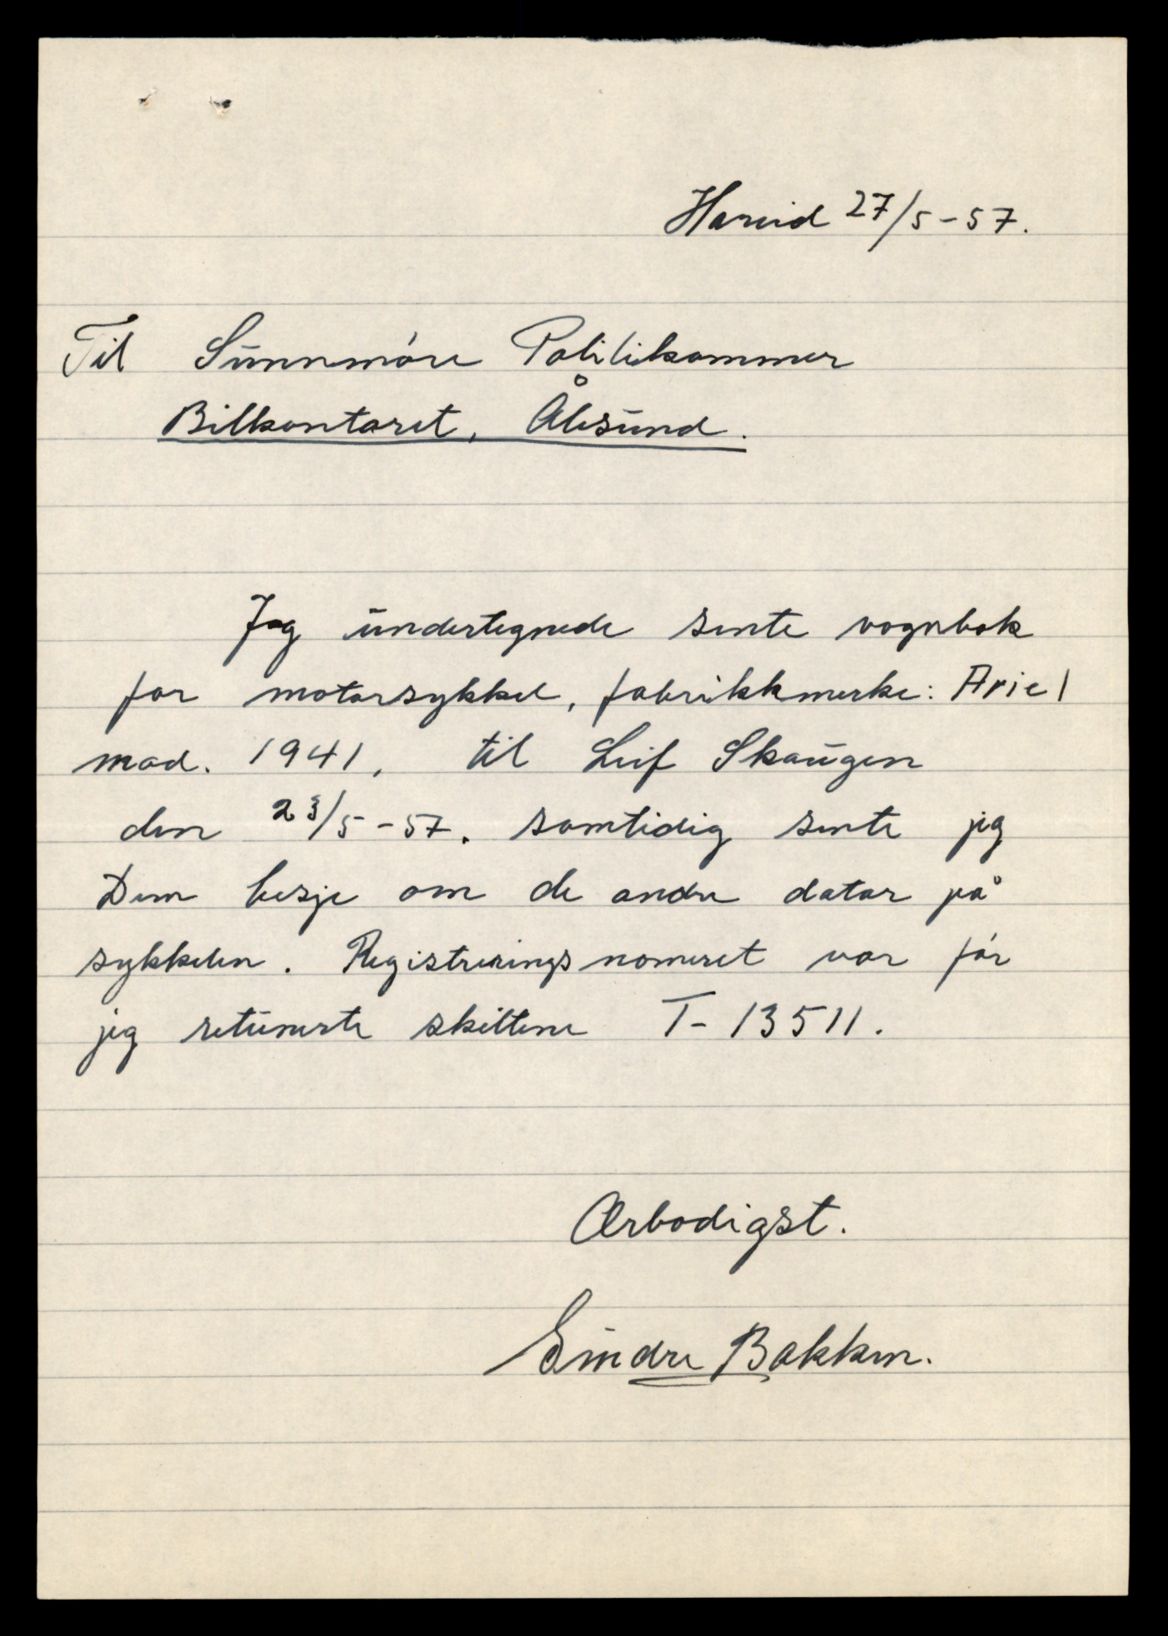 Hareid 27/5-57.
Til Sunnmóre Politikammer
Bilkontoret, Ålesund.
Jeg undertegnede sente vognbok
for motorsykkel, fabrikkmerke: Ariel
mod. 1941, til Leif Skaugen
den 23/5-57. samtidig sente jeg
Dem besje om de andre datar på
sykkelen. Registreringsnomeret var fór
jeg returnerte skiltene T-13511.
Ærbodigst.
Sindre Bakken.